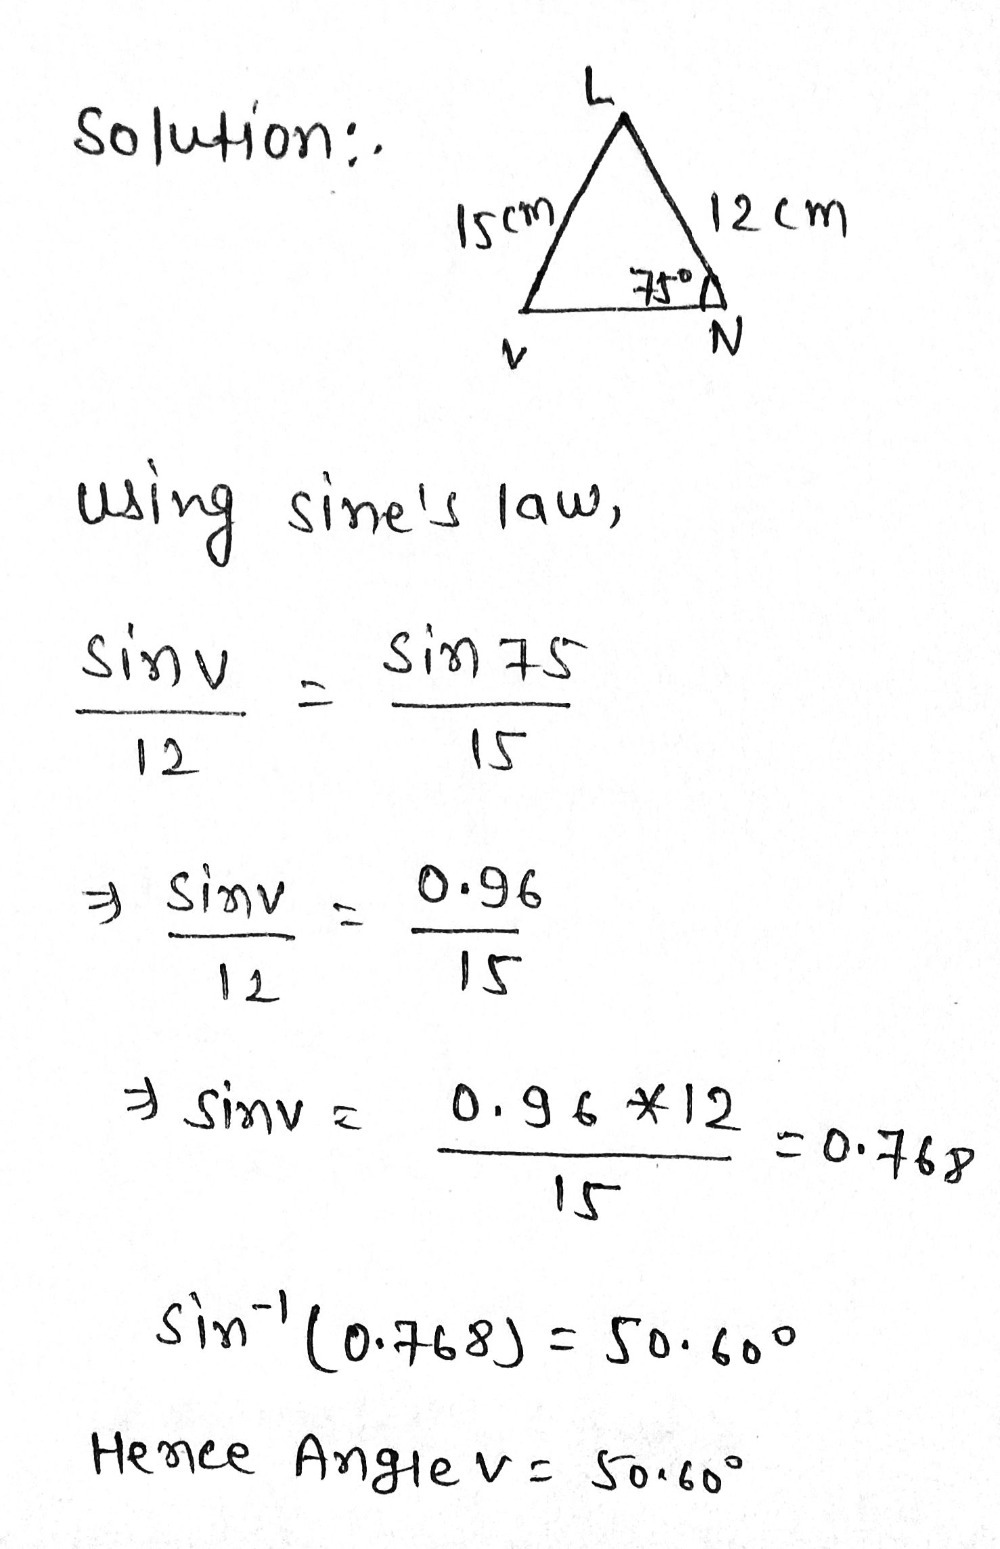 Solution:.
L
15cm
12cm
75°
V
N
using sine's law,
sinv/12 = sin75/15
⇒ sinv/12 = 0.96/15
⇒ sinv = 0.96*12/15 = 0.768
sin⁻¹(0.768) = 50.60°
Hence Angle v = 50.60°